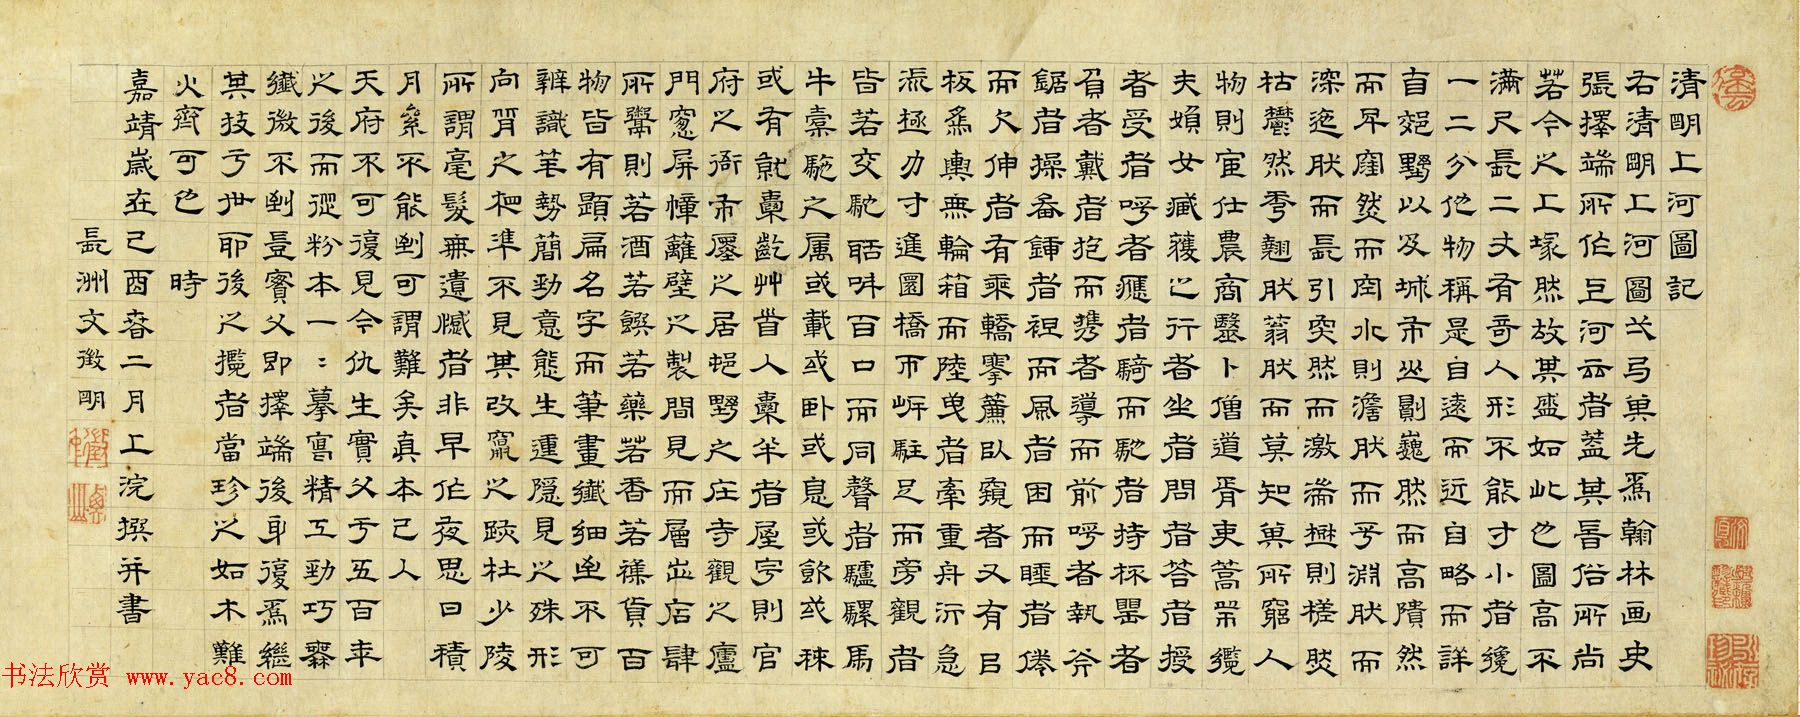 清明上河圖記
右清明上河圖弌弓其先為翰林画史
張擇端所作上河云者蓋其善俗所尚
若今之上冢然故其盛如此也圖高不
滿尺長二丈有奇人形不能寸小者纔
一二分他物稱是自遠而近自略而詳
自郊野以及城市山則巍然而高隤然
而卑窪然而空水則澹然而平淵然而
深迤然而長引突然而激湍樹則槎然
枯鬱然秀翹然蓊然而莫知其所窮人
物則宦仕農商醫卜僧道胥吏篙師纜
夫婦女臧獲之行者坐者問者答者授
者受者呼者應者騎而馳者持杯罌者
負者戴者抱而攜者導而前呼者執斧
鋸者操畚鍤者袒而風者困而睡者倦
而欠伸者有乘轎搴簾臥窺者又有以
板為輿無輪箱而陸曳者牽重舟泝急
流極力寸進圜橋帀岸駐足而旁觀者
皆若交馳聒叫百口而同聲者驢騾馬
牛橐駝之属或載或卧或息或飲或秣
或有就橐齕艸首入橐半者屋宇則官
府之衙市廛之居邨野之庄寺觀之廬
門窗屏幛籬壁之製間見而層出店肆
所鬻則若酒若饌若藥若香若襍貨百
物皆有題扁名字而筆畫纖細至不可
辨識筆勢簡勁意態生運隱見之殊形
向背之相準不見其改竄之跡杜少陵
所謂毫髮無遺憾者非早作夜思日積
月累不能到可謂難矣真本已入
天府不可復見今仇生實父于五百年
之後而從粉本一二摹寫精工勁巧
纖微不到豈實父即擇端後身復為繼
其技于世耶後之攬者當珍之如木難
火齊可也 時
嘉靖歲在己酉春二月上浣撰并書
長洲文徵明
书法欣赏 www.yac8.com